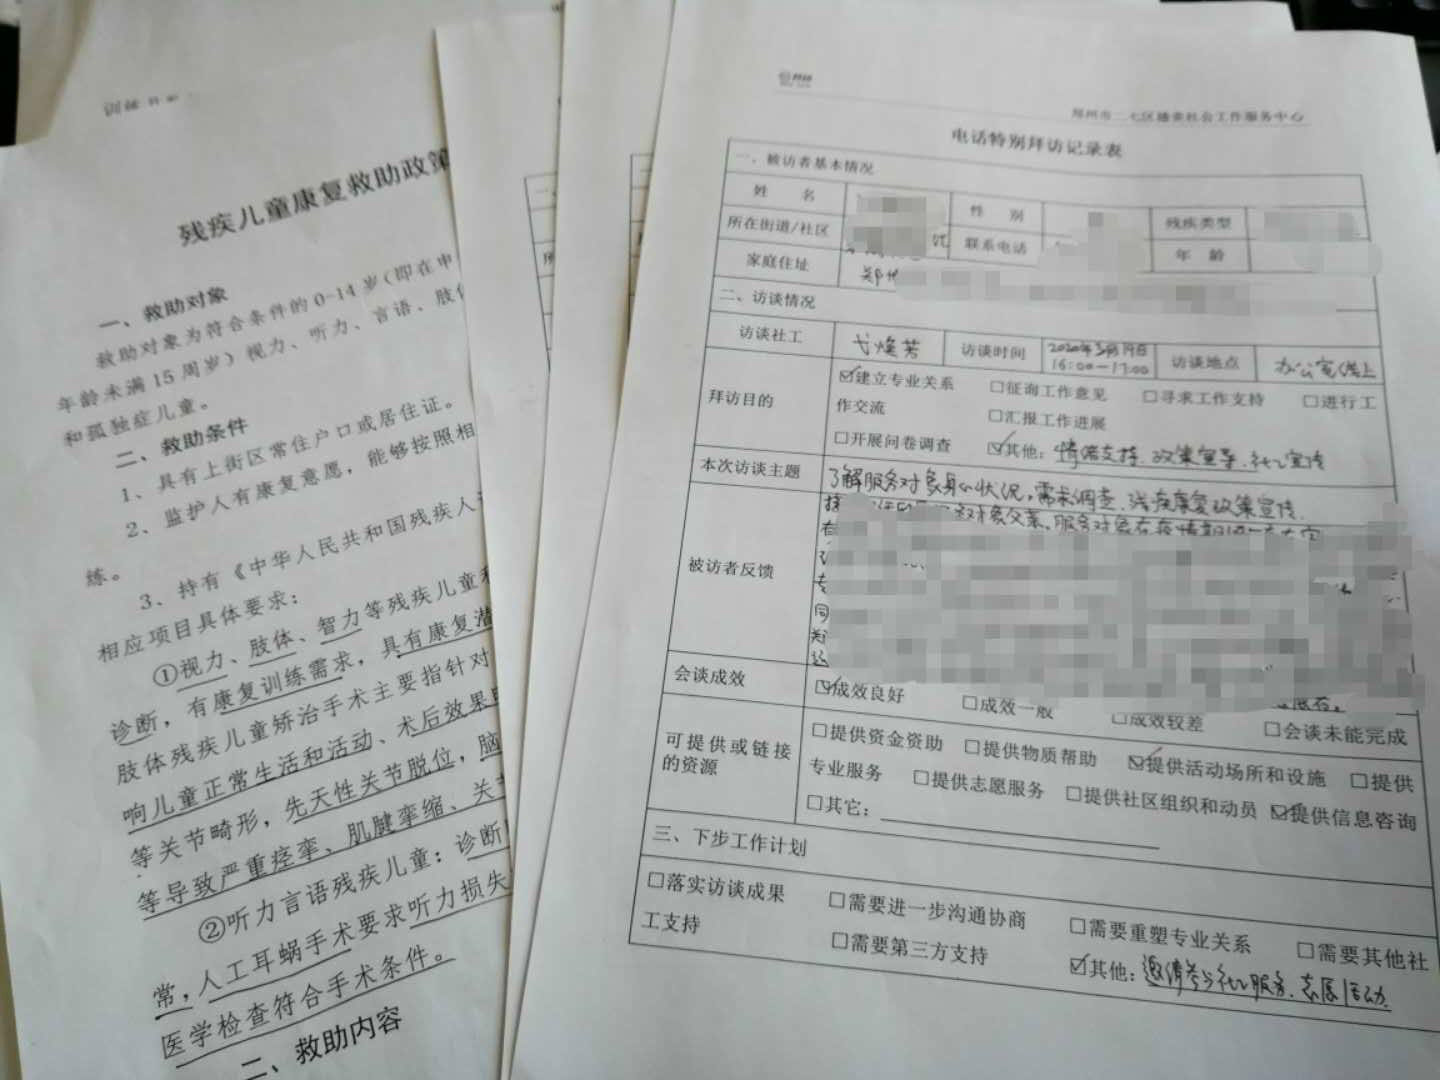 残疾儿童康复救助政策
一、救助对象
救助对象为符合条件的 0-14 岁（即在申
年龄未满 15 周岁）视力、听力、言语、肢体
和孤独症儿童。
二、救助条件
1、具有上街区常住户口或居住证。
2、监护人有康复意愿，能够按照相
练。
3、持有《中华人民共和国残疾人
相应项目具体要求：
①视力、肢体、智力等残疾儿童
诊断，有康复训练需求，具有康复潜
肢体残疾儿童矫治手术主要指针对
响儿童正常生活和活动、术后效果
等关节畸形，先天性关节脱位，脑
等导致严重痉挛、肌腱挛缩、关
②听力言语残疾儿童：诊断
常，人工耳蜗手术要求听力损失
医学检查符合手术条件。
二、救助内容
郑州市二七区 社会工作服务中心
电话特别拜访记录表
一、被访者基本情况
姓 名 性 别 残疾类型
所在街道/社区 联系电话 年 龄
家庭住址 郑
二、访谈情况
访谈社工 访谈时间 2020年3月19日 16:00-17:00 访谈地点 办公室(线上
拜访目的 ☑建立专业关系 □征询工作意见 □寻求工作支持 □进行工
作交流 □汇报工作进展
□开展问卷调查 ☑其他：情绪支持、政策宣导、社工宣传
本次访谈主题 了解服务对象身心状况，需求调查、残疾康复政策宣传.
被访者反馈
会谈成效 ☑成效良好 □成效一般 □成效较差 □会谈未能完成
可提供或链接的资源 □提供资金资助 □提供物质帮助 ☑提供活动场所和设施 □提供
专业服务 □提供志愿服务 □提供社区组织和动员 ☑提供信息咨询
□其它：
三、下步工作计划
□落实访谈成果 □需要进一步沟通协商 □需要重塑专业关系 □需要其他社
工支持 □需要第三方支持 ☑其他：邀请参与社工服务、志愿活动.